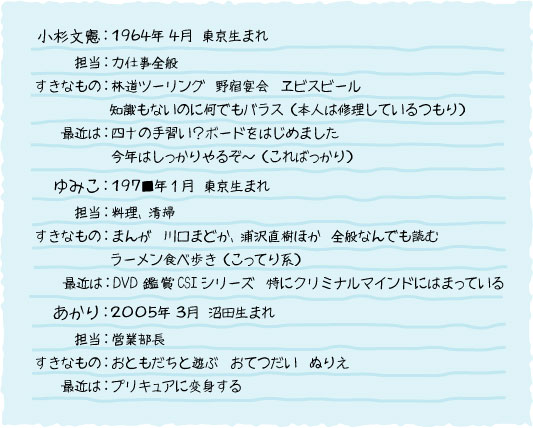 小杉文憲：1964年4月 東京生まれ
担当：力仕事全般
すきなもの：林道ツーリング 野宿宴会 ヱビスビール
知識もないのに何でもバラス（本人は修理しているつもり）
最近は：四十の手習い？ボードをはじめました
今年はしっかりやるぞ～（こればっかり）
ゆみこ：197■年1月 東京生まれ
担当：料理、清掃
すきなもの：まんが 川口まどか、浦沢直樹ほか 全般なんでも読む
ラーメン食べ歩き（こってり系）
最近は：DVD鑑賞CSIシリーズ 特にクリミナルマインドにはまっている
あかり：2005年3月 沼田生まれ
担当：営業部長
すきなもの：おともだちと遊ぶ おてつだい ぬりえ
最近は：プリキュアに変身する